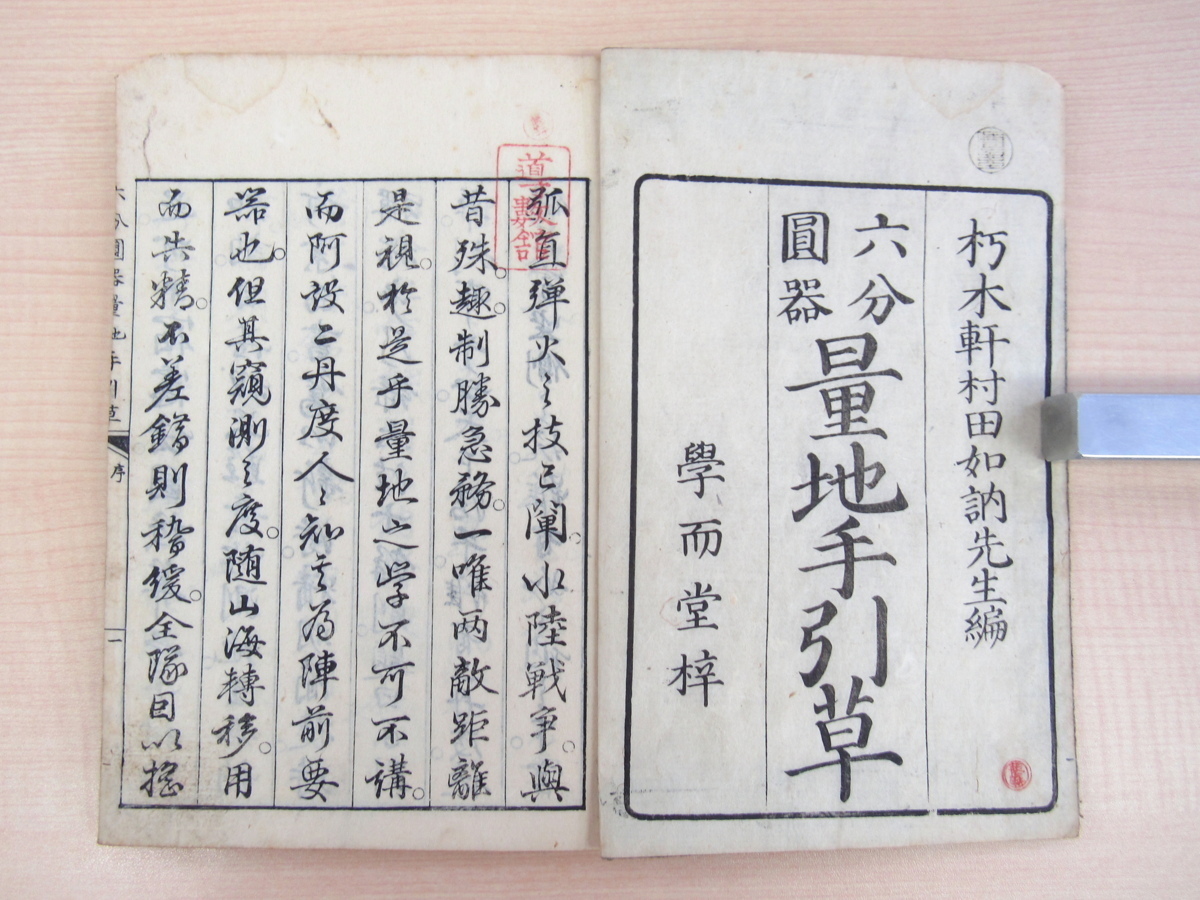 朽木軒村田如訥先生編
六分
圓器
量地手引草
學而堂梓
弧直弾火之技已闡。水陸戦争。與
昔殊。趣。制勝急務。一唯两敵距離
是視。於是乎量地之学不可不講。
而阿設二丹度人〻知其為陣前要
器也。但其窺測之度。随山海轉移。用
而失精。不差錯則稽緩。全隊目以揺
六分圓器量地手引草
序
一